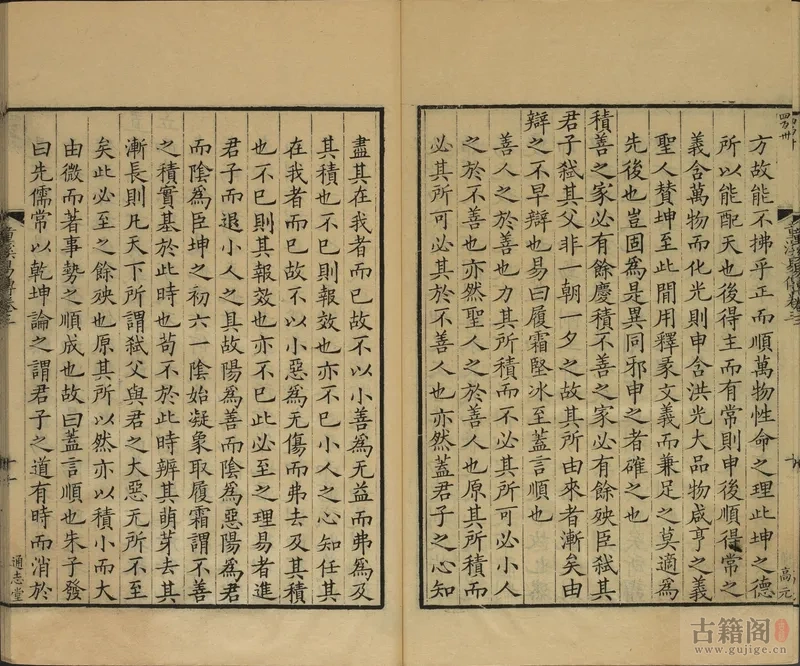 方故能不拂乎正而順萬物性命之理此坤之德
所以能配天也後得主而有常則申後順得常之
義含萬物而化光則申含洪光大品物咸亨之義
聖人賛坤至此閒用釋彖文義而兼足之莫適為
先後也豈固為是異同邪申之者確之也
積善之家必有餘慶積不善之家必有餘殃臣弒其
君子弒其父非一朝一夕之故其所由來者漸矣由
辯之不早辯也易曰履霜堅冰至蓋言順也
善人之於善也力其所積而不必其所可必小人
之於不善也亦然聖人之於善人也原其所積而
必其所可必其於不善人也亦然蓋君子之心知
高元
盡其在我者而已故不以小善爲无益而弗爲及
其積也不已則報效也亦不已小人之心知任其
在我者而已故不以小惡爲无傷而弗去及其積
也不已則其報效也亦不已此必至之理易者進
君子而退小人之具故陽爲善而陰爲惡陽爲君
而陰爲臣坤之初六一陰始凝象取履霜謂不善
之積實基於此時也苟不於此時辨其萌芽去其
漸長則凡天下所謂弒父與君之大惡无所不至
矣此必至之餘殃也原其所以然亦以積小而大
由微而著事勢之順成也故曰蓋言順也朱子發
曰先儒常以乾坤論之謂君子之道有時而消於
通志堂
古籍阁
www.gujige.cn